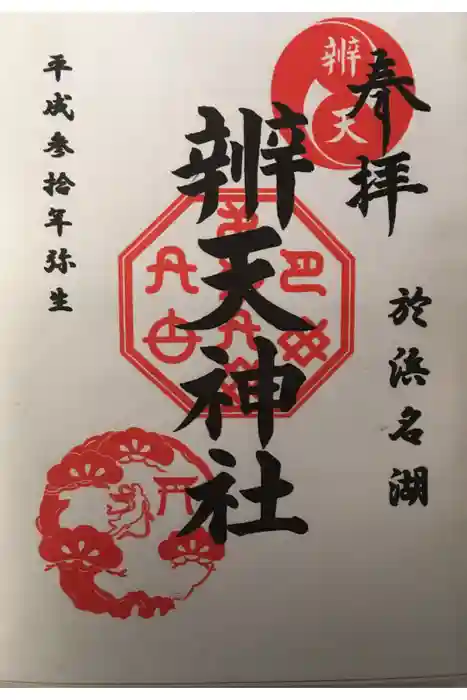 奉拝
於浜名湖
辨天
辨天神社
平成参拾年弥生